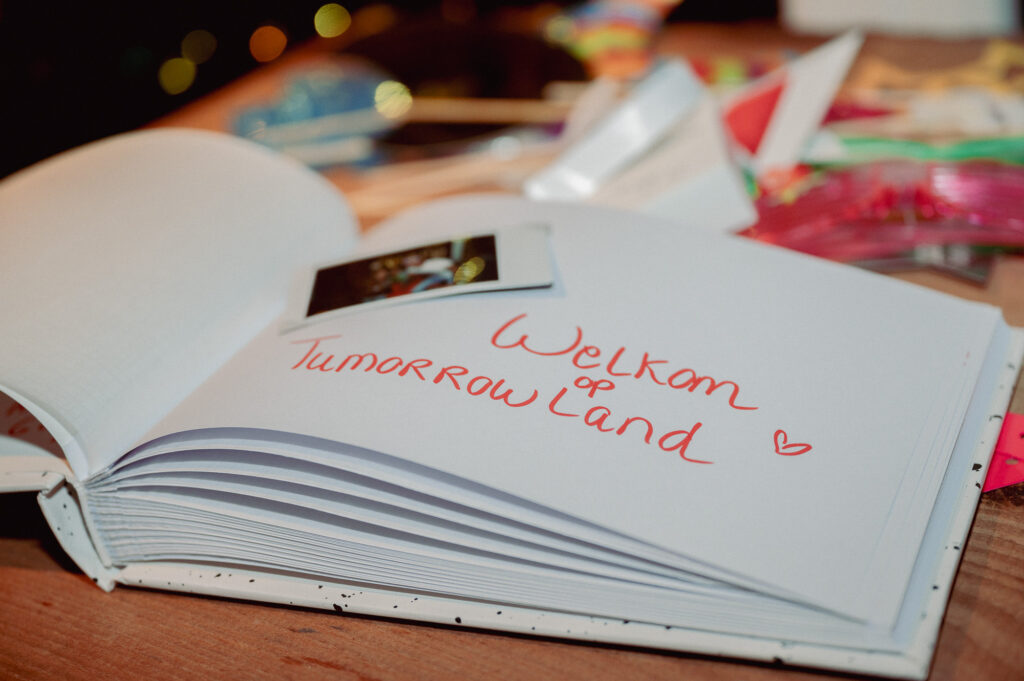 Welkom
op
Tumorrowland